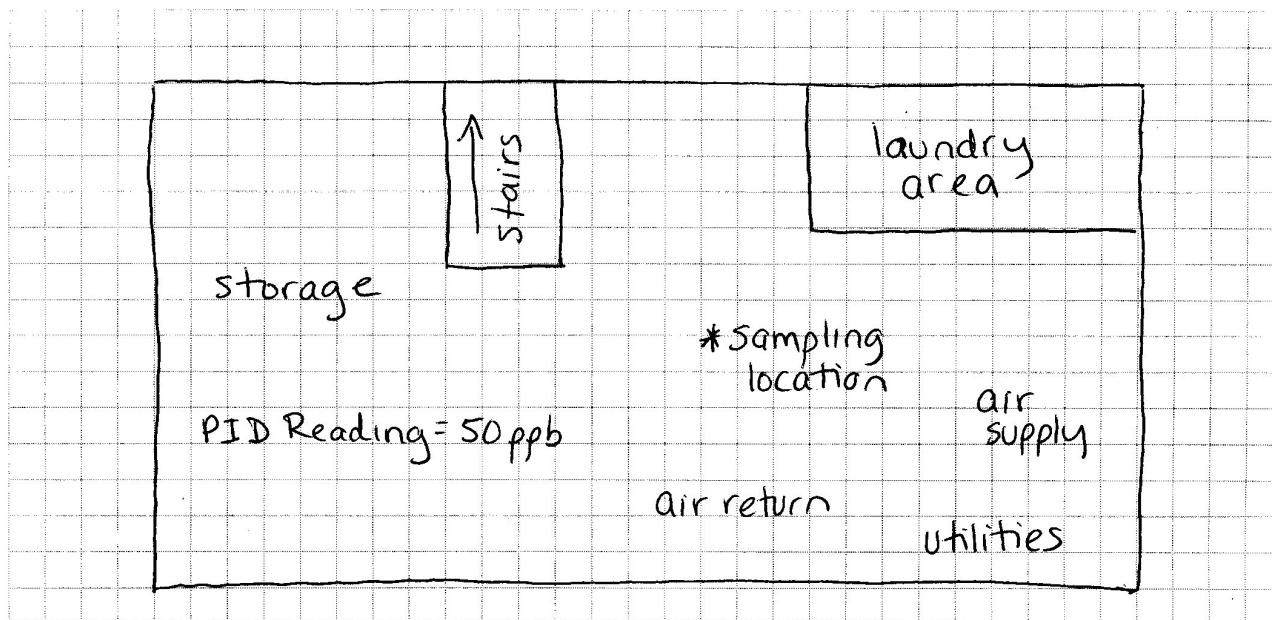 stairs
laundry
area
storage
*sampling
location
air
supply
PID Reading = 50 ppb
air return
utilities